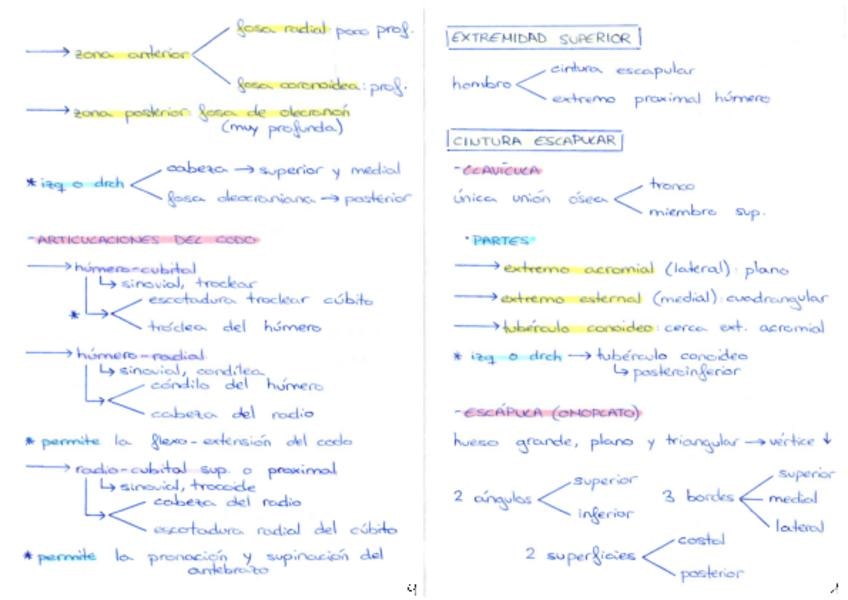 fosa radial poco prof.
→ zona anterior
fosa coronoidea: prof.
→ zona posterior: fosa de olecranon
(muy profunda)
* izq o drch
cabeza → superior y medial
fosa olecraniana → posterior
- ARTICULACIONES DEL CODO
→ húmero-cubital
↳ sinovial, troclear
escotadura troclear cúbito
*
tróclea del húmero
→ húmero-radial
↳ sinovial, condílea
cóndilo del húmero
cabeza del radio
* permite la flexo-extensión del codo
→ radio-cubital sup. o proximal
↳ sinovial, trocoide
cabeza del radio
escotadura radial del cúbito
* permite la pronación y supinación del
antebrazo
4
EXTREMIDAD SUPERIOR
hombro
cintura escapular
extremo proximal húmero
CINTURA ESCAPULAR
- CLAVÍCULA
única unión ósea
tronco
miembro sup.
· PARTES
→ extremo acromial (lateral): plano
→ extremo esternal (medial): cuadrangular
→ tubérculo conoideo: cerca ext. acromial
* izq o drch → tubérculo conoideo
↳ posteroinferior
- ESCÁPULA (OMOPLATO)
hueso grande, plano y triangular → vértice ↓
2 ángulos
superior
inferior
3 bordes
superior
medial
lateral
2 superficies
costal
posterior
1